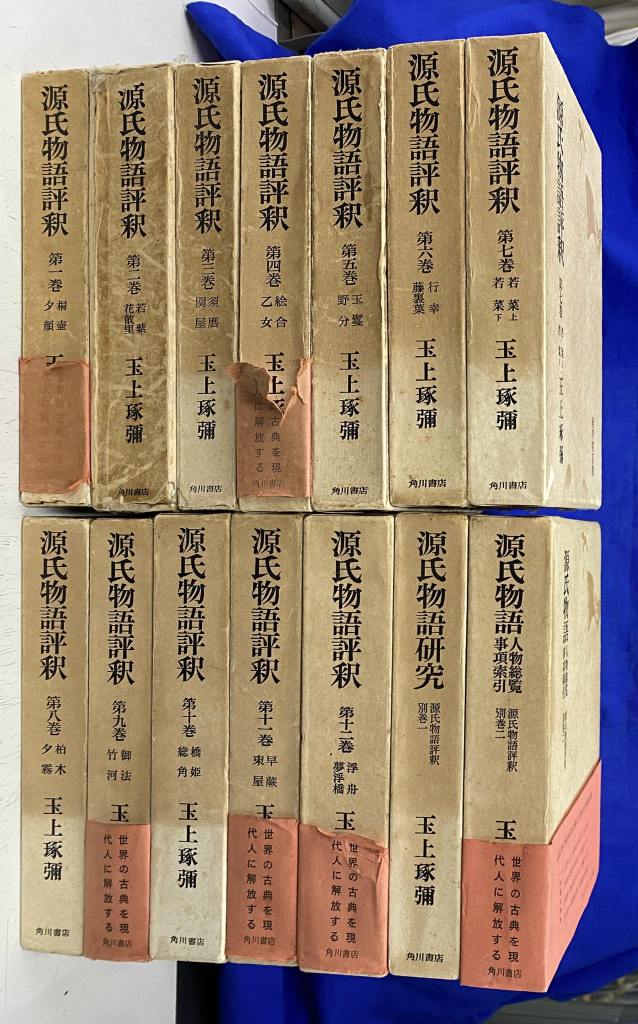 源氏物語評釈
第一巻
桐壺
夕顔
源氏物語評釈
第二巻
若紫
花散里
玉上琢彌
角川書店
源氏物語評釈
第三巻
須磨
関屋
玉上琢彌
角川書店
源氏物語評釈
第四巻
絵合
乙女
玉上
古典を現
に解放する
角川書店
源氏物語評釈
第五巻
玉鬘
野分
玉上琢彌
角川書店
源氏物語評釈
第六巻
行幸
藤裏葉
玉上琢彌
角川書店
源氏物語評釈
第七巻
若菜上
若菜下
玉上琢彌
角川書店
源氏物語評釈
玉上琢彌
源氏物語評釈
第八巻
柏木
夕霧
玉上琢彌
角川書店
源氏物語評釈
第九巻
御法
竹河
玉
世界の古典を現
代人に解放する
角川書店
源氏物語評釈
第十巻
橋姫
総角
玉上琢彌
角川書店
源氏物語評釈
第十一巻
早蕨
東屋
玉
世界の古典を現
代人に解放する
角川書店
源氏物語評釈
第十二巻
浮舟
夢浮橋
玉
世界の古典を現
代人に解放する
角川書店
源氏物語研究
源氏物語評釈
別巻一
玉上琢彌
角川書店
源氏物語人物総覧
事項索引
源氏物語評釈
別巻二
玉
世界の古典を現
代人に解放する
角川書店